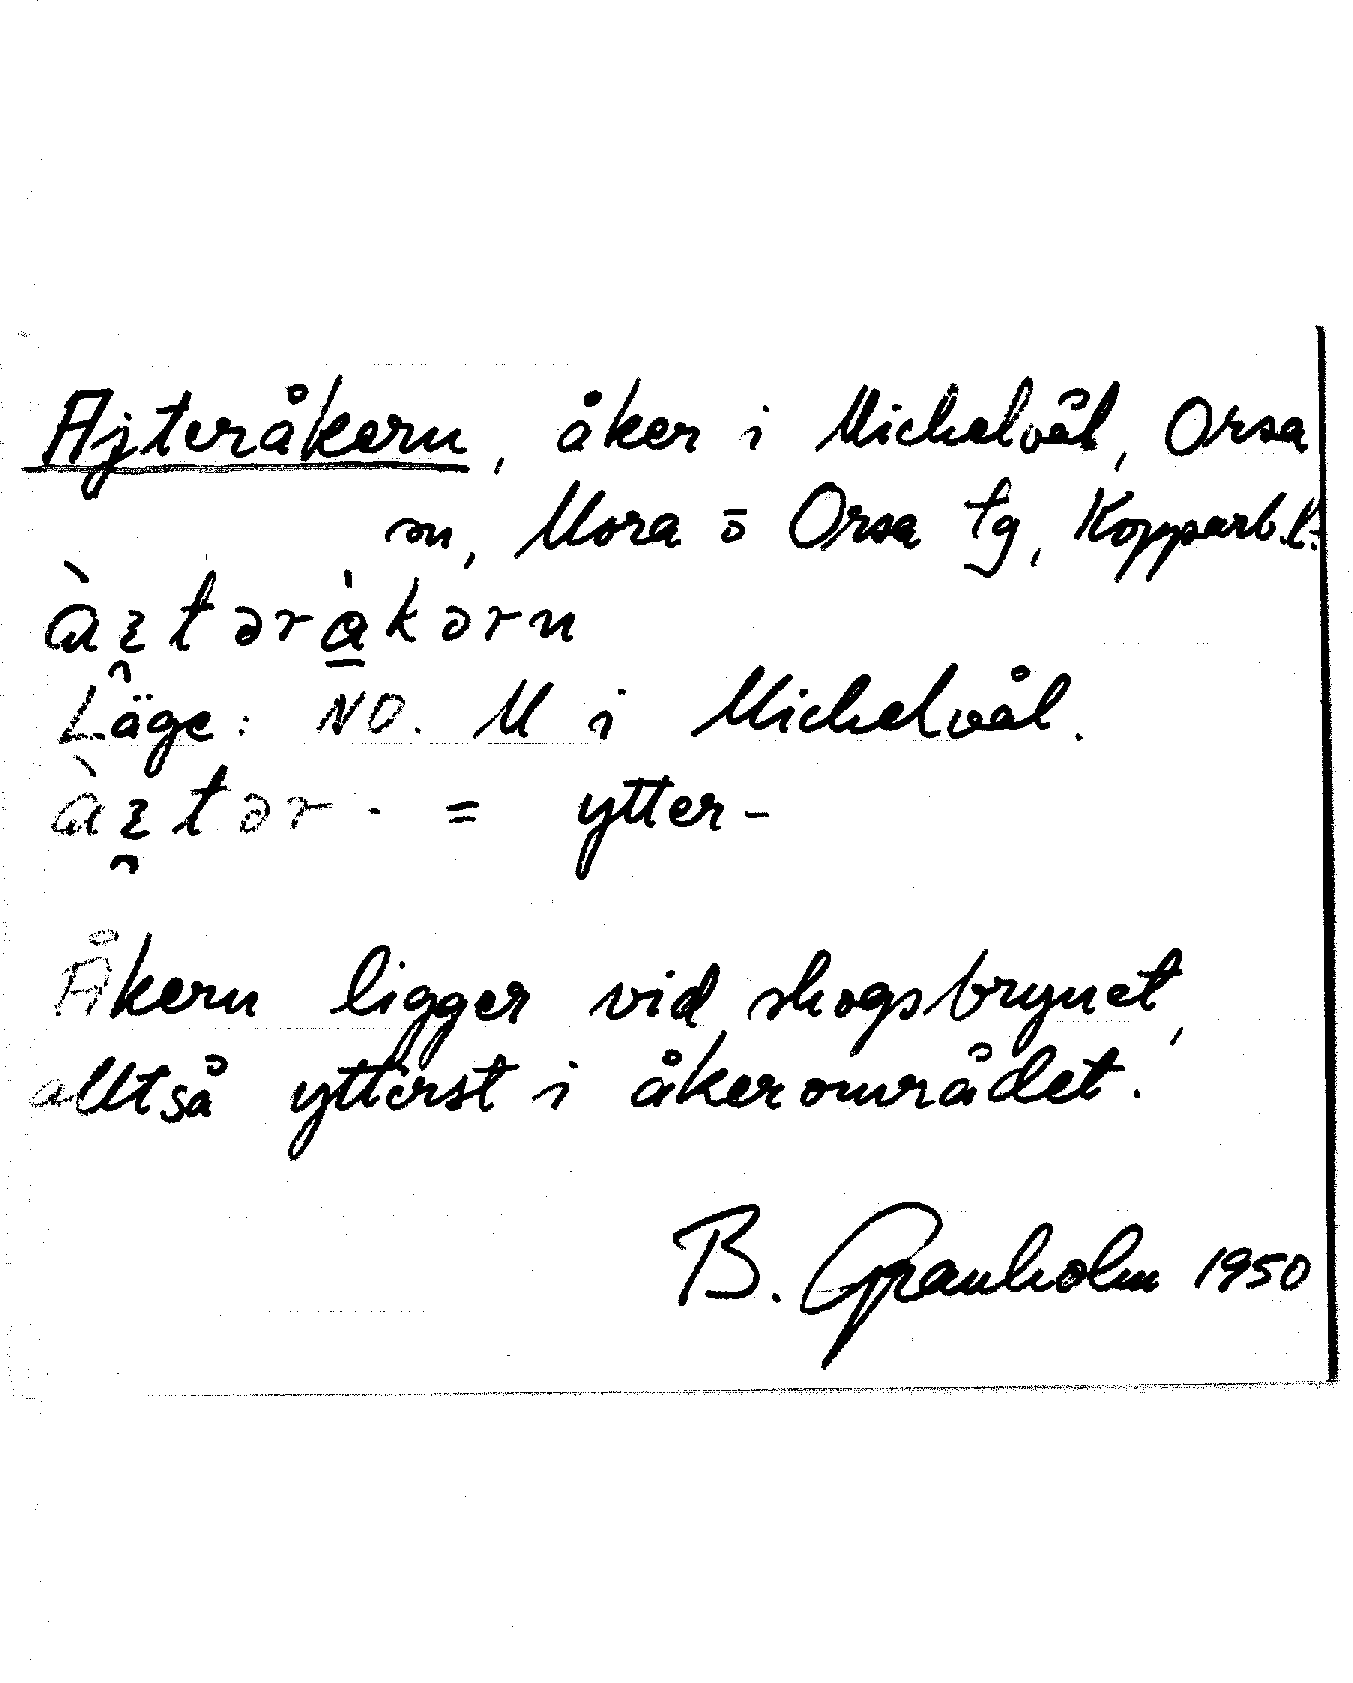 Ajteråkern, åker i Mickelvål, Orsa
sn, Mora o Orsa tg, Kopparb.l.
àɪ̯təràkərn
Läge: NO. M i Mickelvål.
àɪ̯tər- = ytter-
Åkern ligger vid skogsbrynet,
alltså ytterst i åkerområdet.
B. Granholm 1950